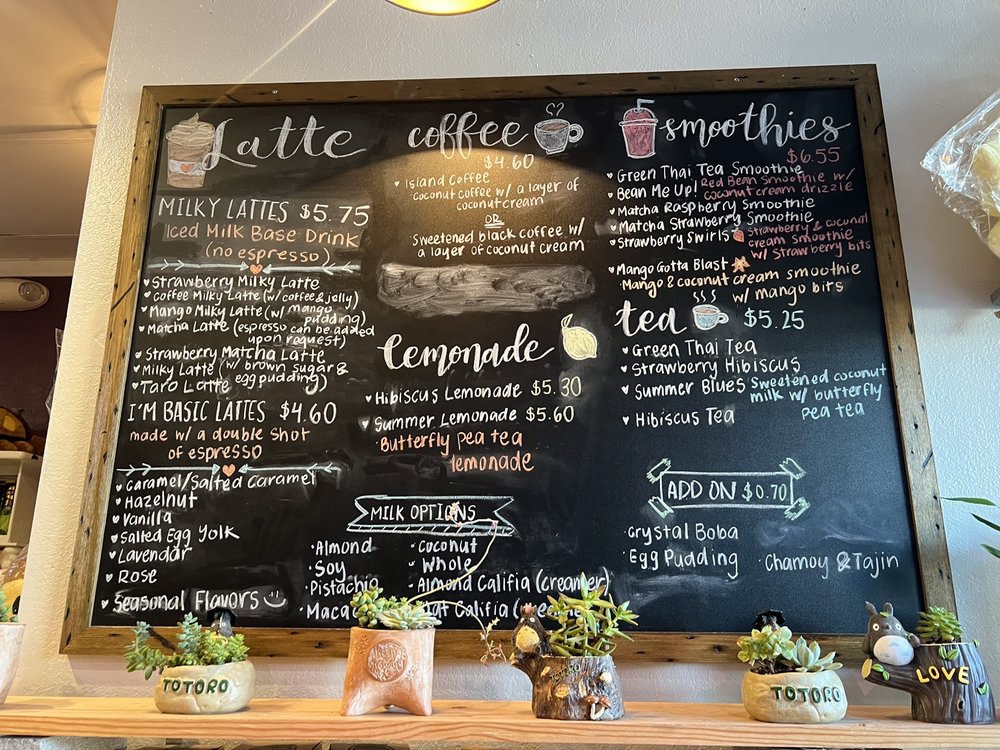 Latte
MILKY LATTES $5.75
Iced Milk Base Drink
(no espresso)
Strawberry Milky Latte
Coffee Milky Latte (w/ coffee & jelly)
Mango Milky Latte (w/ mango
pudding)
Matcha Latte (espresso can be added
upon request)
Strawberry Matcha Latte
Milky Latte (w/ brown sugar &
egg pudding)
Taro Latte
I'M BASIC LATTES $4.60
made w/ a double shot
of espresso
Caramel/Salted Caramel
Hazelnut
Vanilla
Salted Egg Yolk
Lavendar
Rose
Seasonal Flavors
coffee
$4.60
Island Coffee
coconut coffee w/ a layer of
coconut cream
OR
Sweetened black coffee w/
a layer of coconut cream
lemonade
Hibiscus Lemonade $5.30
Summer Lemonade $5.60
Butterfly pea tea
lemonade
MILK OPTIONS
Almond
Soy
Pistachio
Coconut
Whole
Almond Califia (creamer)
Califia
smoothies
$6.55
Green Thai Tea Smoothie
Bean Me Up! Red Bean Smoothie w/
coconut cream drizzle
Matcha Raspberry Smoothie
Matcha Strawberry Smoothie
Strawberry Swirls strawberry & coconut
cream smoothie
w/ strawberry bits
Mango Gotta Blast
Mango & coconut cream smoothie
w/ mango bits
tea $5.25
Green Thai Tea
Strawberry Hibiscus
Summer Blues Sweetened coconut
milk w/ butterfly
pea tea
Hibiscus Tea
ADD ON $0.70
Crystal Boba
Egg Pudding
Chamoy & Tajin
TOTORO
TOTORO
LOVE